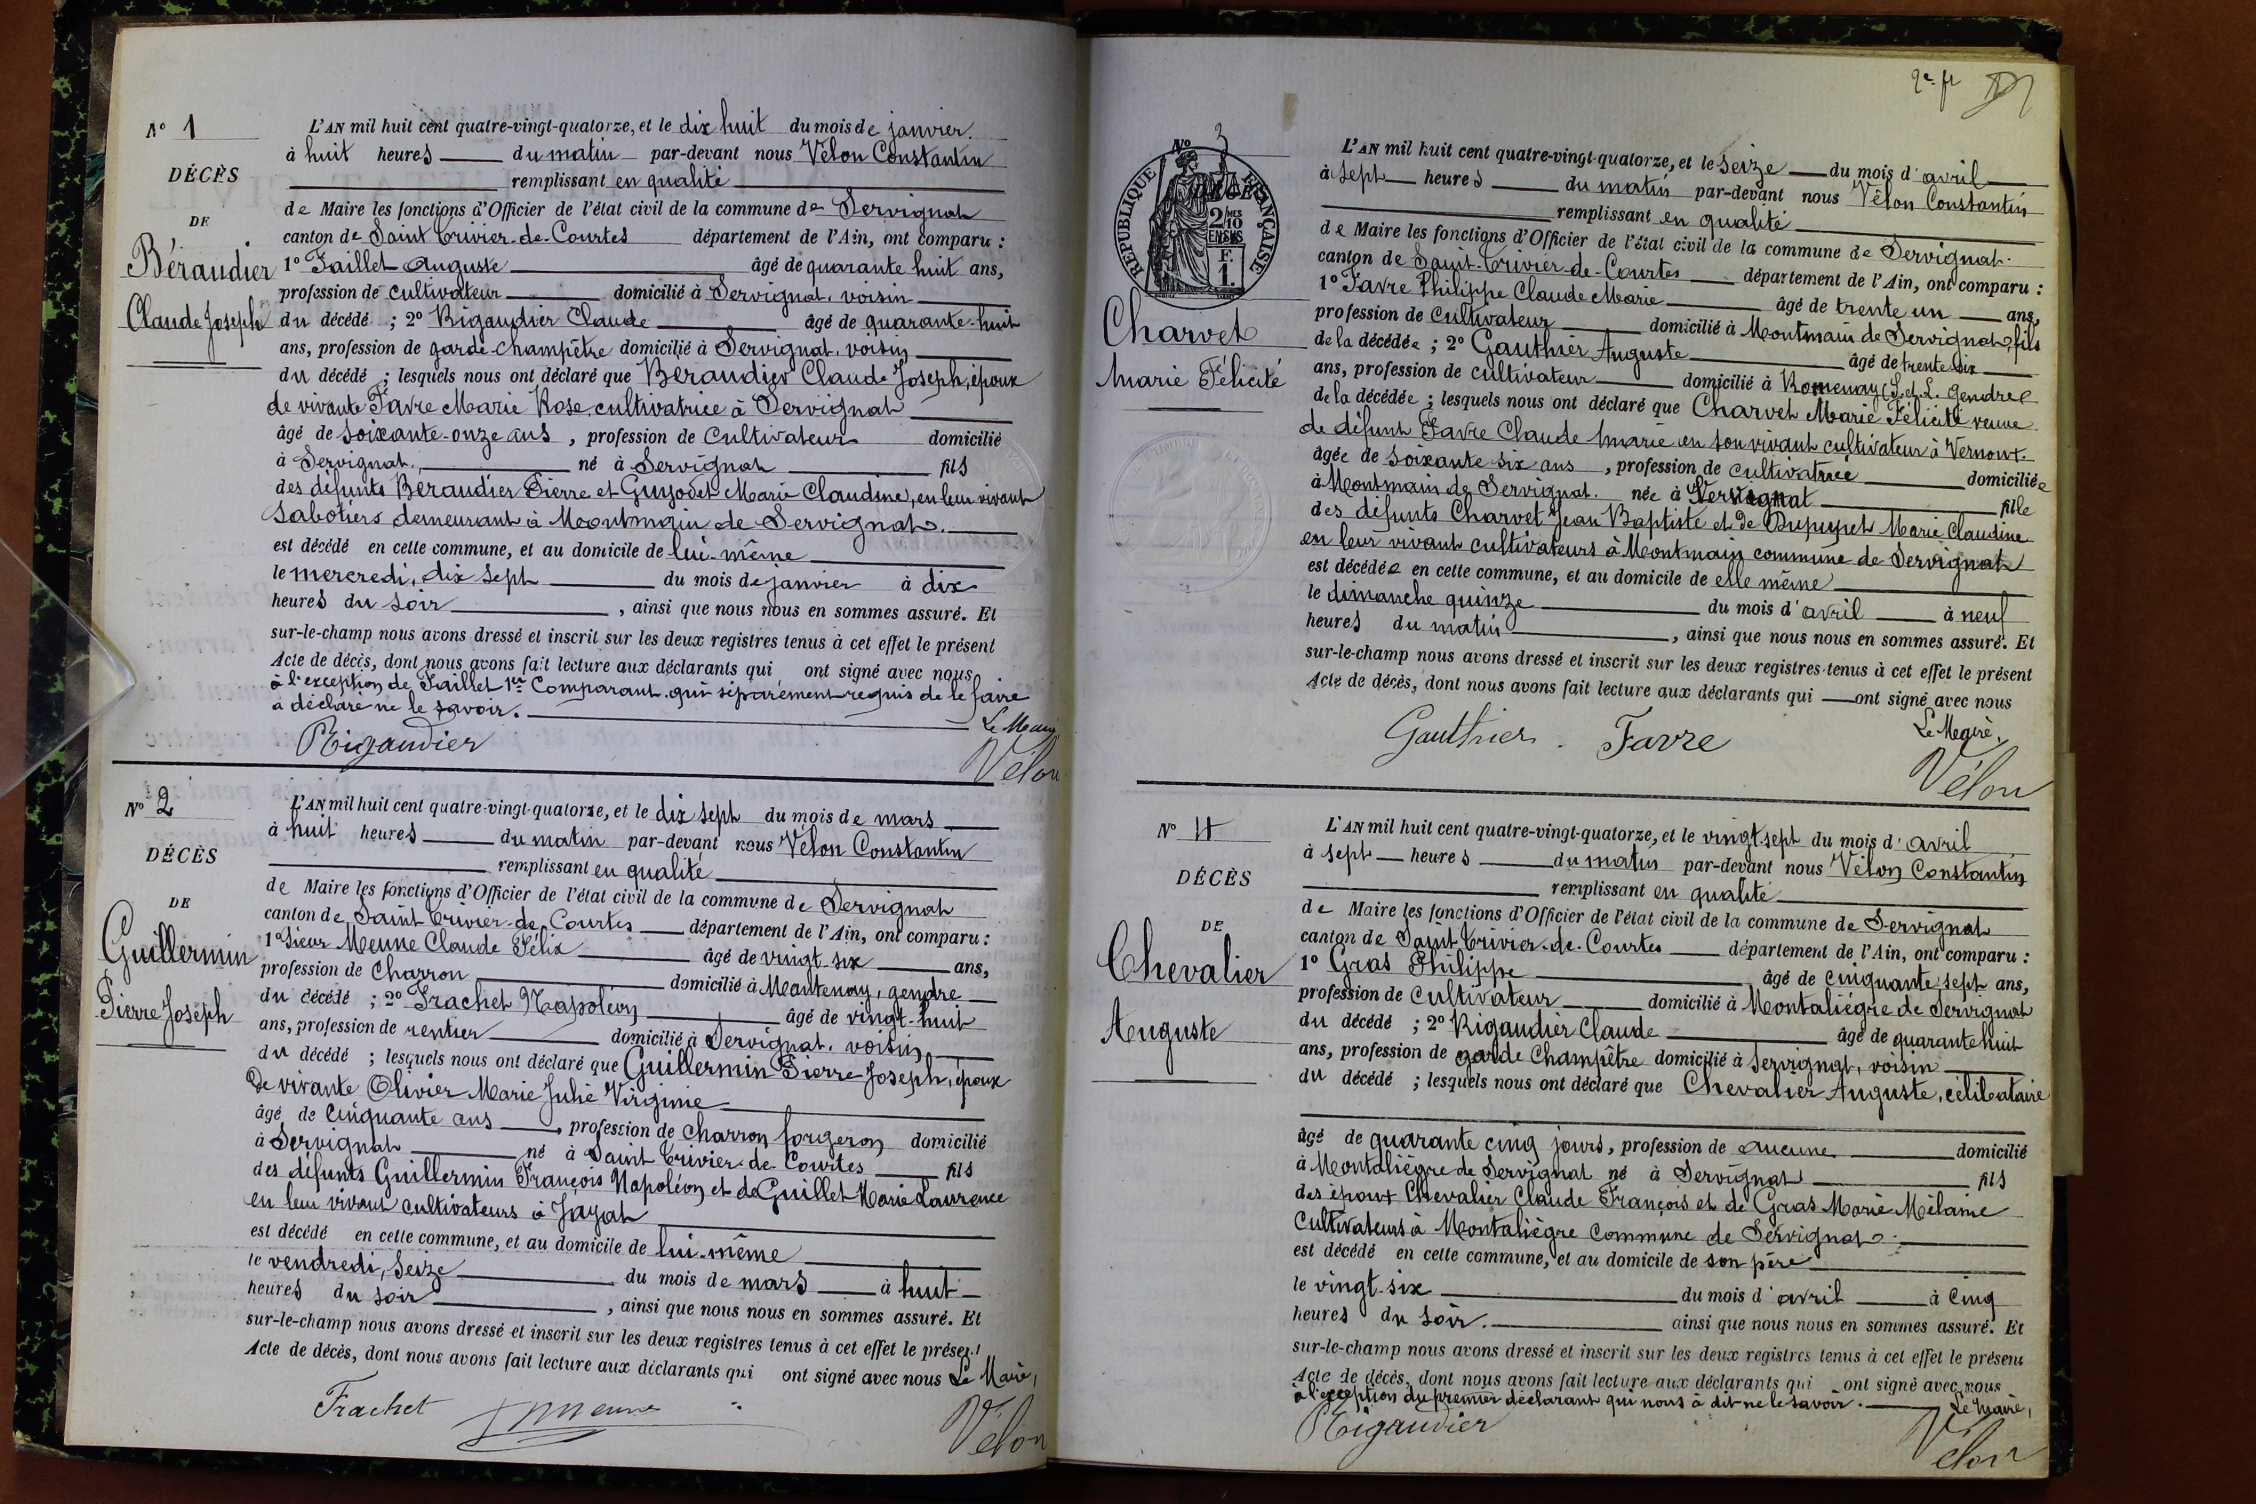 N° 1
DÉCÈS
DE
Béraudier
Claude Joseph
L'AN mil huit cent quatre-vingt-quatorze, et le dix huit du mois de janvier
à huit heures du matin par-devant nous Vélon Constantin
remplissant en qualité
de Maire les fonctions d'Officier de l'état civil de la commune de Servignat
canton de Saint Trivier-de-Courtes département de l'Ain, ont comparu :
1° Faillet Auguste âgé de quarante huit ans,
profession de cultivateur domicilié à Servignat, voisin
du décédé ; 2° Rigaudier Claude âgé de quarante-huit
ans, profession de garde-champêtre domicilié à Servignat, voisin
du décédé ; lesquels nous ont déclaré que Béraudier Claude Joseph, époux
de vivante Favre Marie Rose, cultivatrice à Servignat
âgé de soixante-onze ans, profession de cultivateur domicilié
à Servignat, né à Servignat fils
des défunts Béraudier Pierre et Guyodet Marie Claudine, en leur vivant
sabotiers demeurant à Montmain de Servignat.
est décédé en cette commune, et au domicile de lui-même
le mercredi, dix sept du mois de janvier à dix
heures du soir, ainsi que nous nous en sommes assuré. Et
sur-le-champ nous avons dressé et inscrit sur les deux registres tenus à cet effet le présent
Acte de décès, dont nous avons fait lecture aux déclarants qui ont signé avec nous
à l'exception de Faillet 1er Comparant qui séparément requis de le faire
a déclaré ne le savoir.
Le Maire
Rigaudier Vélon
N° 2
DÉCÈS
DE
Guillermin
Pierre Joseph
L'AN mil huit cent quatre-vingt-quatorze, et le dix sept du mois de mars
à huit heures du matin par-devant nous Vélon Constantin
remplissant en qualité
de Maire les fonctions d'Officier de l'état civil de la commune de Servignat
canton de Saint Trivier-de-Courtes département de l'Ain, ont comparu :
1° Sieur Meune Claude Félix âgé de vingt-six ans,
profession de Charron domicilié à Mantenay, gendre
du décédé ; 2° Frachet Napoléon âgé de vingt-huit
ans, profession de rentier domicilié à Servignat, voisin
du décédé ; lesquels nous ont déclaré que Guillermin Pierre Joseph, époux
de vivante Olivier Marie Julie Virginie
âgé de cinquante ans, profession de Charron forgeron domicilié
à Servignat né à Saint Trivier-de-Courtes fils
des défunts Guillermin François Napoléon et de Guillet Marie Laurence
en leur vivant cultivateurs à Jayat
est décédé en cette commune, et au domicile de lui-même
le vendredi, seize du mois de mars à huit
heures du soir, ainsi que nous nous en sommes assuré. Et
sur-le-champ nous avons dressé et inscrit sur les deux registres tenus à cet effet le présent
Acte de décès, dont nous avons fait lecture aux déclarants qui ont signé avec nous Le Maire,
Frachet Meune Vélon
2e ft
N° 3
RÉPUBLIQUE FRANÇAISE
2 10
EN SUS
F.
1.
Charvet
Marie Félicité
L'AN mil huit cent quatre-vingt-quatorze, et le seize du mois d'avril
à sept heures du matin par-devant nous Vélon Constantin
remplissant en qualité
de Maire les fonctions d'Officier de l'état civil de la commune de Servignat.
canton de Saint-Trivier-de-Courtes département de l'Ain, ont comparu :
1° Favre Philippe Claude Marie âgé de trente un ans,
profession de cultivateur domicilié à Montmain de Servignat, fils
de la décédée ; 2° Gauthier Auguste âgé de trente six
ans, profession de cultivateur domicilié à Romenay (S.et.L. gendre
de la décédée ; lesquels nous ont déclaré que Charvet Marie Félicité veuve
de défunt Favre Claude Marie en son vivant cultivateur à Vernoux.
âgée de soixante six ans, profession de cultivatrice domiciliée
à Montmain de Servignat. née à Servignat fille
des défunts Charvet Jean Baptiste et de Dupupet Marie Claudine
en leur vivant cultivateurs à Montmain commune de Servignat
est décédée en cette commune, et au domicile de elle même
le dimanche quinze du mois d'avril à neuf
heures du matin, ainsi que nous nous en sommes assuré. Et
sur-le-champ nous avons dressé et inscrit sur les deux registres tenus à cet effet le présent
Acte de décès, dont nous avons fait lecture aux déclarants qui ont signé avec nous
Le Maire,
Gauthier. Favre Vélon
N° 4
DÉCÈS
DE
Chevalier
Auguste
L'AN mil huit cent quatre-vingt-quatorze, et le vingt-sept du mois d'avril
à sept heures du matin par-devant nous Vélon Constantin
remplissant en qualité
de Maire les fonctions d'Officier de l'état civil de la commune de Servignat
canton de Saint Trivier-de-Courtes département de l'Ain, ont comparu :
1° Gras Philippe âgé de cinquante sept ans,
profession de cultivateur domicilié à Montaliègre de Servignat
du décédé ; 2° Rigaudier Claude âgé de quarante huit
ans, profession de garde Champêtre domicilié à Servignat, voisin
du décédé ; lesquels nous ont déclaré que Chevalier Auguste, célibataire
âgé de quarante cinq jours, profession de aucune domicilié
à Montaliègre de Servignat né à Servignat fils
des époux Chevalier Claude François et de Gras Marie Mélanie
Cultivateurs à Montaliègre Commune de Servignat.
est décédé en cette commune, et au domicile de son père
le vingt-six du mois d'avril à cinq
heures du soir. ainsi que nous nous en sommes assuré. Et
sur-le-champ nous avons dressé et inscrit sur les deux registres tenus à cet effet le présent
Acte de décès, dont nous avons fait lecture aux déclarants qui ont signé avec nous
à l'exception du premier déclarant qui nous à dit ne le savoir. Le Maire,
Rigaudier Vélon